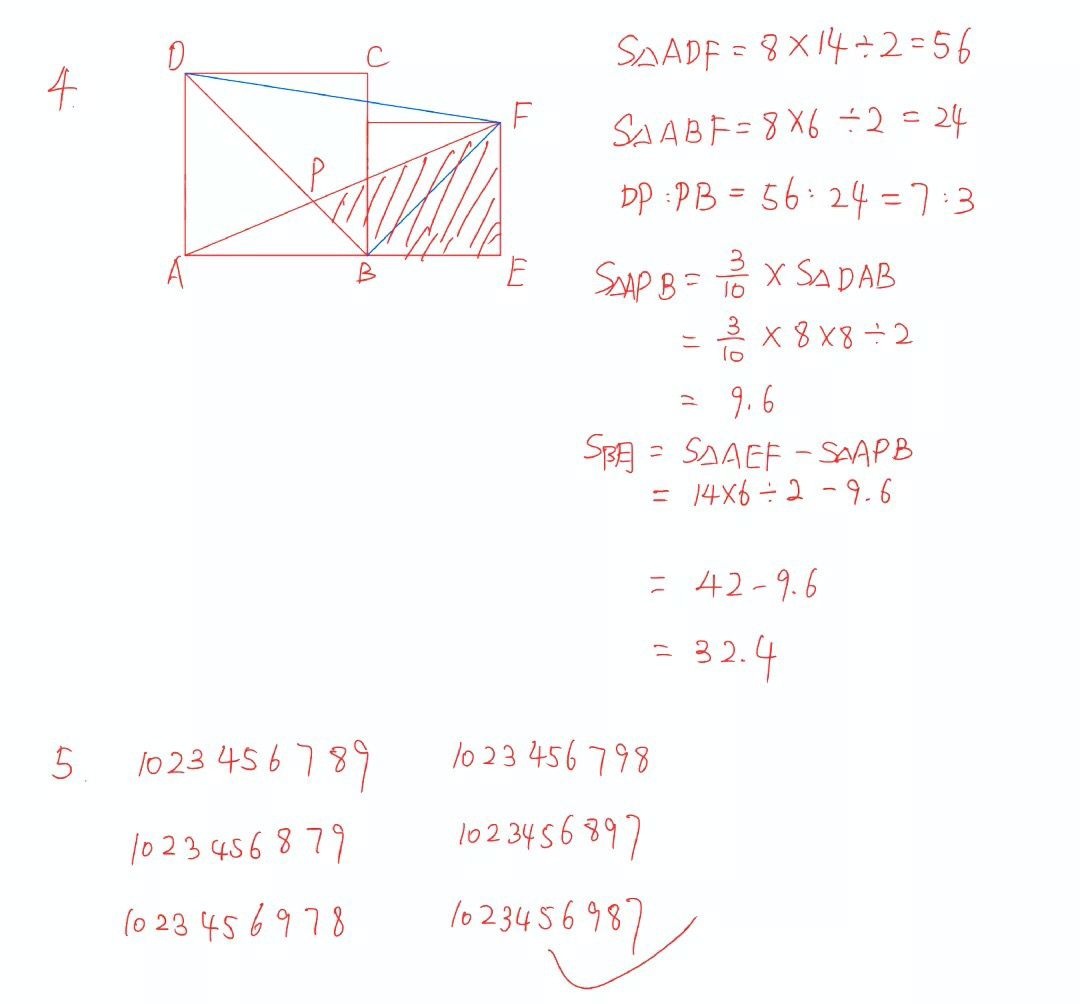 4.
D
C
F
P
A
B
E
S△ADF = 8×14÷2=56
S△ABF = 8×6÷2 = 24
DP:PB = 56:24=7:3
S△APB = 3/10 × S△DAB
= 3/10 × 8×8÷2
= 9.6
S阴 = S△AEF - S△APB
= 14×6÷2 - 9.6
= 42-9.6
= 32.4
5. 1023456789 1023456798
1023456879 1023456897
1023456978 1023456987